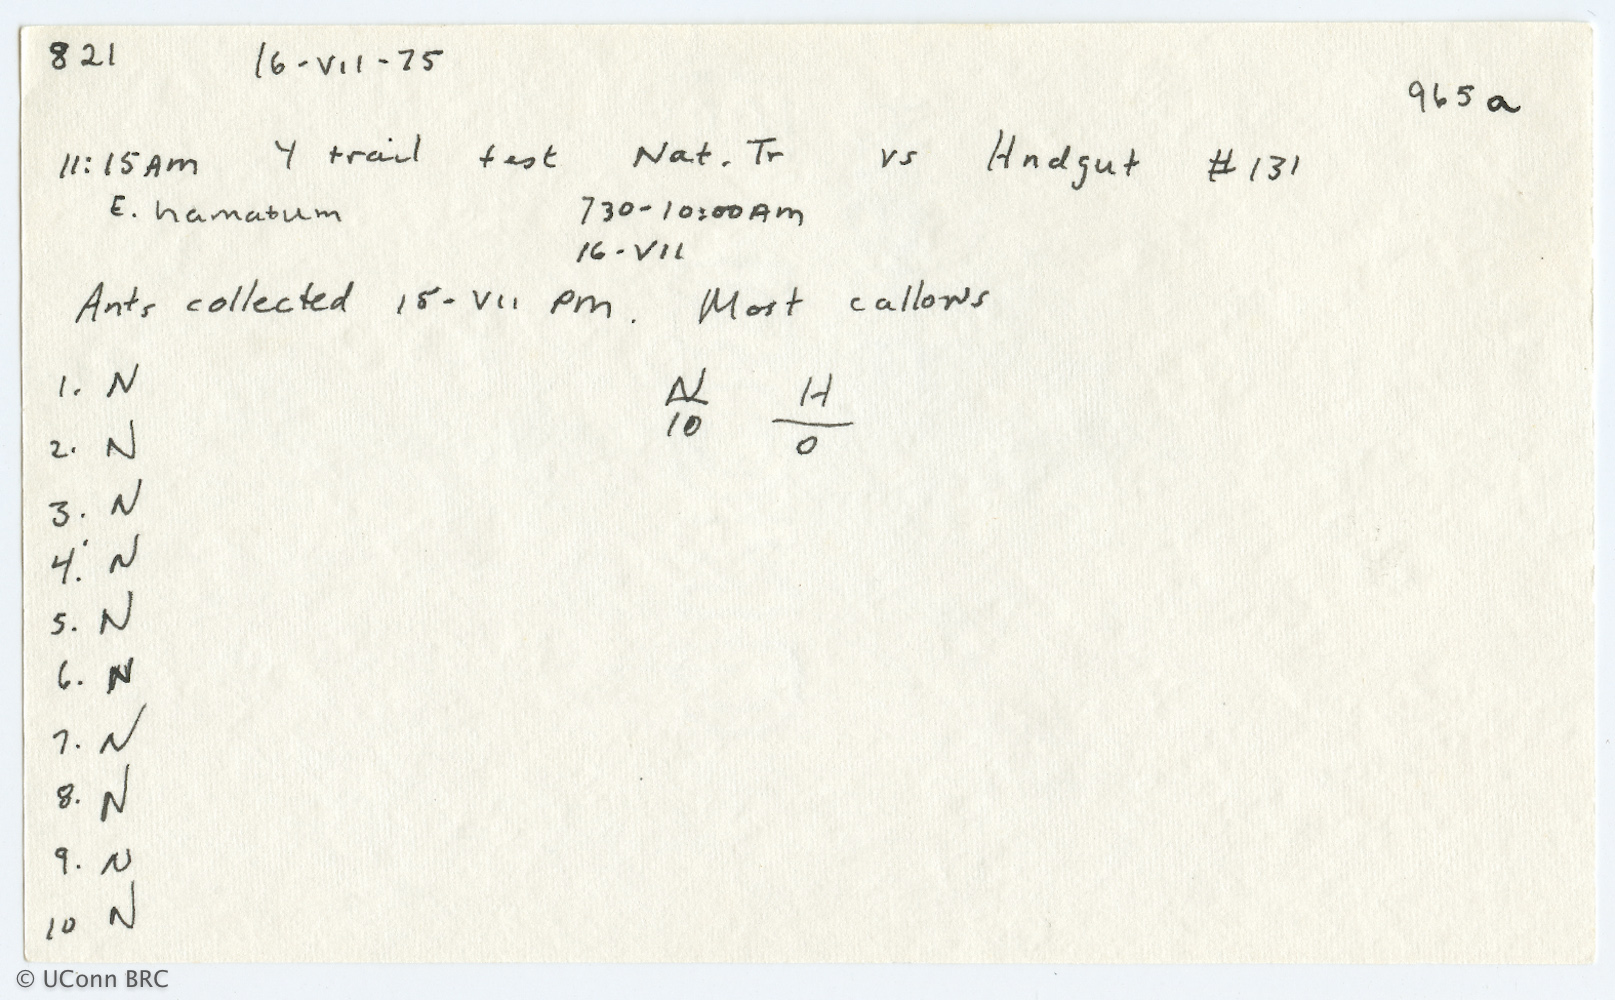 821 16-VII-75
965a
11:15AM Y trail test Nat. Tr vs Hndgut #131
E. hamatum 730-10:00AM
16-VII
Ants collected 15-VII PM. Most callows
1. N
2. N
3. N
4. N
5. N
6. N
7. N
8. N
9. N
10 N
N H
10 0
© UConn BRC